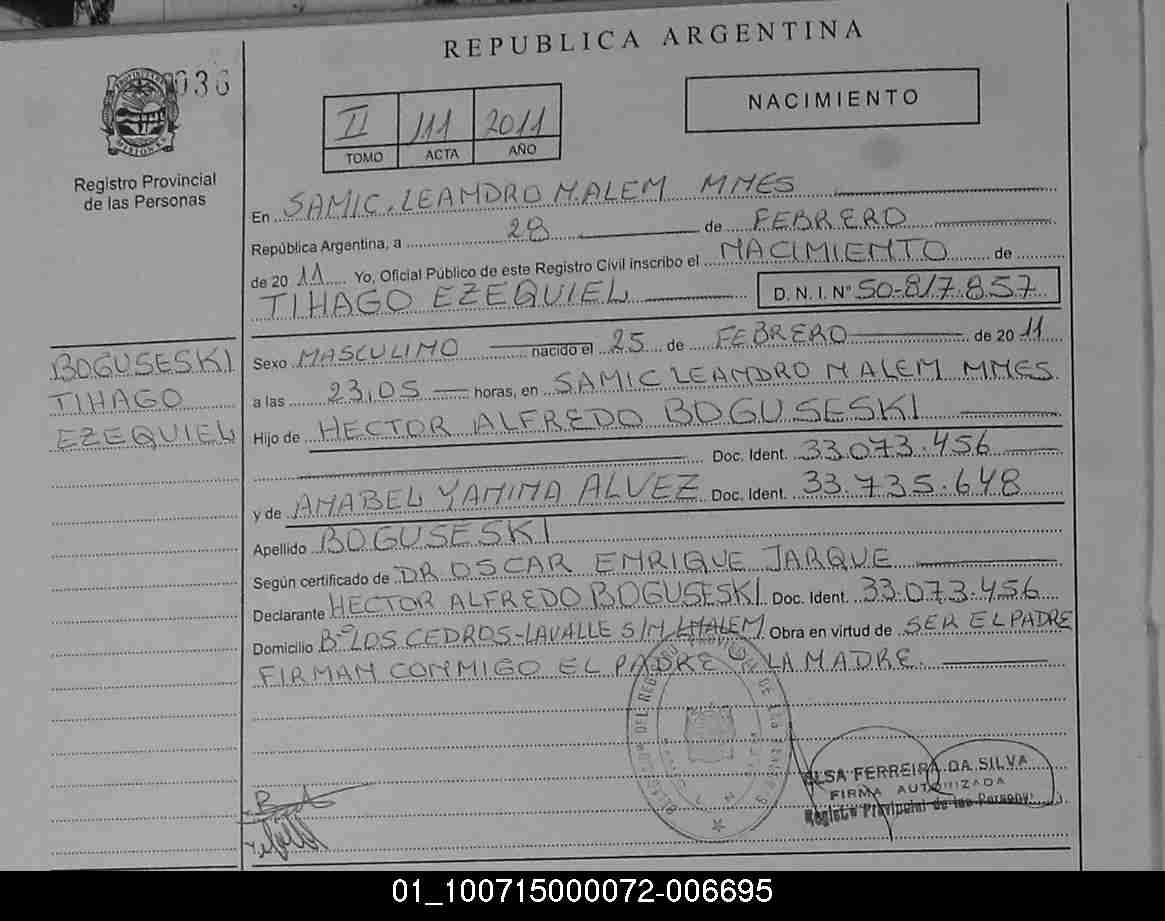 REPUBLICA ARGENTINA
036
II 111 2011
TOMO ACTA AÑO
NACIMIENTO
MISIONES
Registro Provincial
de las Personas
En SAMIC. LEANDRO N. ALEM MNES
República Argentina, a 28 de FEBRERO
de 2011 Yo, Oficial Público de este Registro Civil inscribo el NACIMIENTO de
TIHAGO EZEQUIEL D. N. I. Nº 50-817.857
BOGUSESKI
TIHAGO
EZEQUIEL
Sexo MASCULINO nacido el 25 de FEBRERO de 2011
a las 23,05 horas, en SAMIC LEANDRO N ALEM MNES
Hijo de HECTOR ALFREDO BOGUSESKI
Doc. Ident. 33.073.456
y de ANABEL YANINA ALVEZ Doc. Ident. 33.735.648
Apellido BOGUSESKI
Según certificado de DR OSCAR ENRIQUE JARQUE
Declarante HECTOR ALFREDO BOGUSESKI Doc. Ident. 33.073.456
Domicilio Bº LOS CEDROS-LAVALLE S/N LNALEM Obra en virtud de SER EL PADRE
FIRMAN CONMIGO EL PADRE Y LA MADRE.
ELSA FERREIRA DA SILVA
FIRMA AUTORIZADA
Registro Provincial de las Personas
01_100715000072-006695